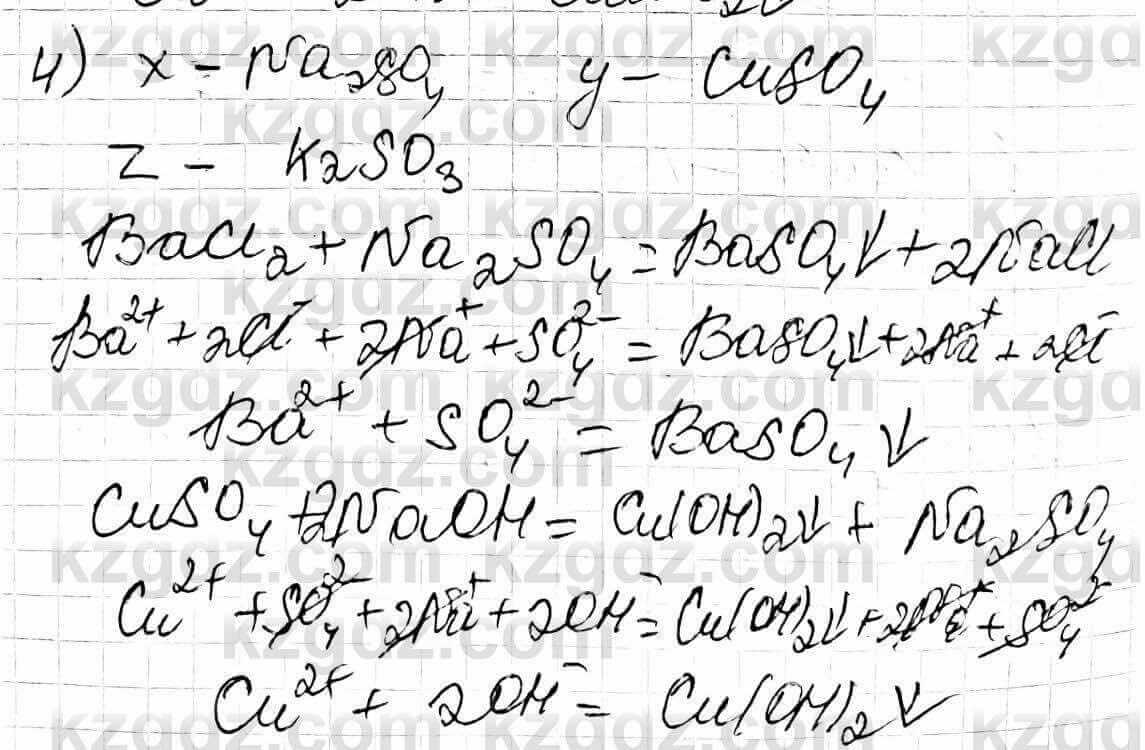 4) x - Na₂SO₄ y - CuSO₄
z - K₂SO₃
BaCl₂ + Na₂SO₄ = BaSO₄↓ + 2NaCl
Ba²⁺ + 2Cl⁻ + 2Na⁺ + SO₄²⁻ = BaSO₄↓ + 2Na⁺ + 2Cl⁻
Ba²⁺ + SO₄²⁻ = BaSO₄↓
CuSO₄ + 2NaOH = Cu(OH)₂↓ + Na₂SO₄
Cu²⁺ + SO₄²⁻ + 2Na⁺ + 2OH⁻ = Cu(OH)₂↓ + 2Na⁺ + SO₄²⁻
Cu²⁺ + 2OH⁻ = Cu(OH)₂↓
kzgdz.com